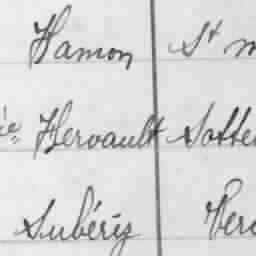 Hamon St m
ie Hervault Sotte
Subériz Verc